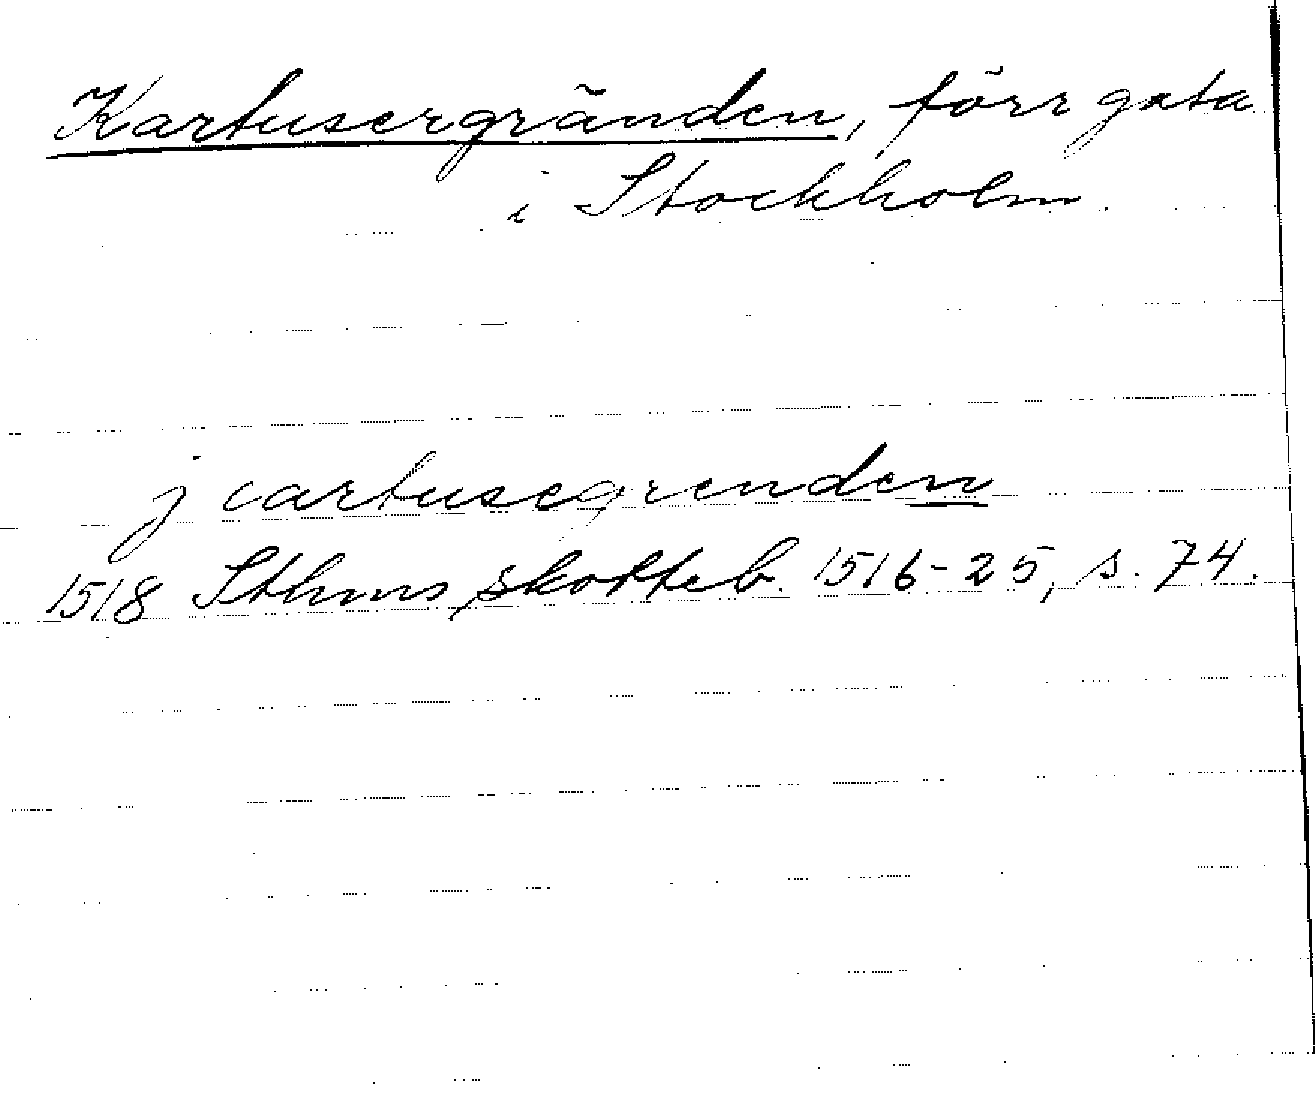 Kartusergränden, förr gata
i Stockholm.
j cartusegrenden
1518 Sthms skotteb. 1516-25, s. 74.